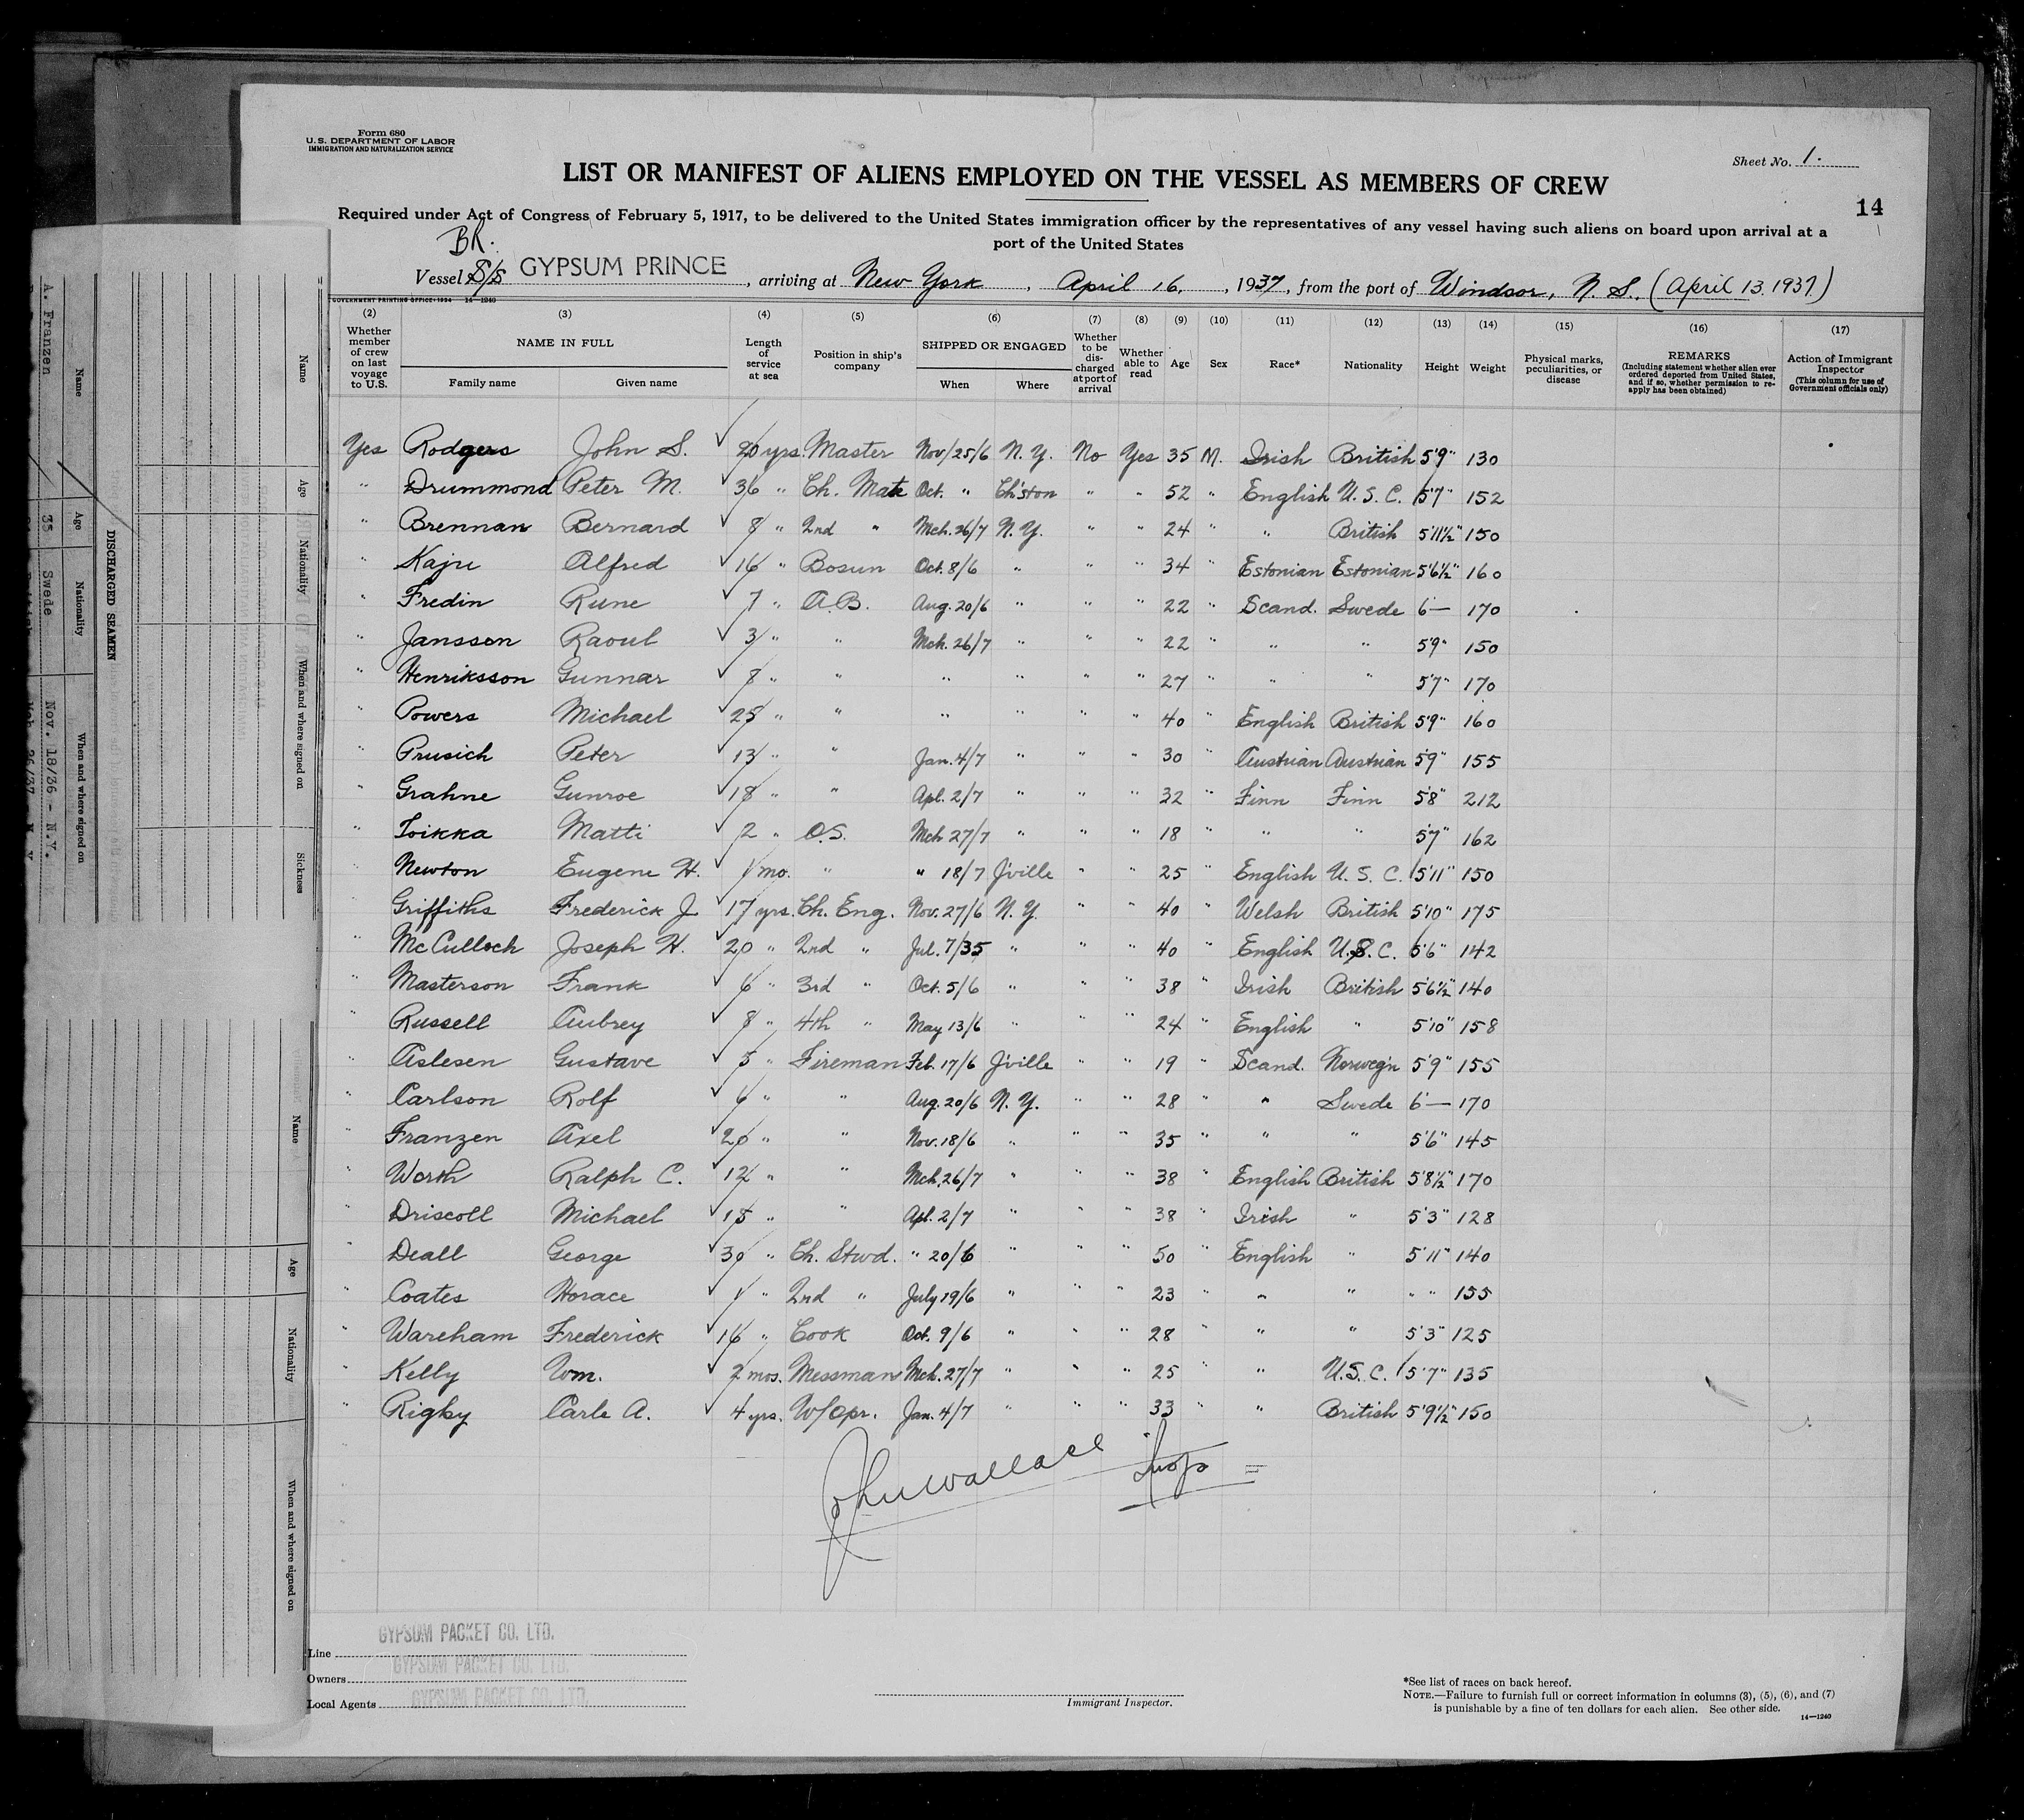 Form 680
U.S. DEPARTMENT OF LABOR
IMMIGRATION AND NATURALIZATION SERVICE
Sheet No. 1.
LIST OR MANIFEST OF ALIENS EMPLOYED ON THE VESSEL AS MEMBERS OF CREW
14
Required under Act of Congress of February 5, 1917, to be delivered to the United States immigration officer by the representatives of any vessel having such aliens on board upon arrival at a
port of the United States
Br.
Vessel S/S GYPSUM PRINCE, arriving at New York, April 16, 1937, from the port of Windsor, N. S. (April 13, 1937)
GOVERNMENT PRINTING OFFICE: 1934 14—1240
(2) (3) (4) (5) (6) (7) (8) (9) (10) (11) (12) (13) (14) (15) (16) (17)
Whether member of crew on last voyage to U.S. NAME IN FULL Family name Given name Length of service at sea Position in ship's company SHIPPED OR ENGAGED When Where Whether to be discharged at port of arrival Whether able to read Age Sex Race* Nationality Height Weight Physical marks, peculiarities, or disease REMARKS (Including statement whether alien ever ordered deported from United States, and if so, whether permission to re-apply has been obtained) Action of Immigrant Inspector (This column for use of Government officials only)
Yes Rodgers John S. ✓ 20 yrs. Master Nov/25/6 N. Y. No Yes 35 M. Irish British 5'9" 130
" Drummond Peter M. ✓ 36 " Ch. Mate Oct. " Ch'ston " " 52 " English U. S. C. 5'7" 152
" Brennan Bernard ✓ 8 " 2nd " Mch. 26/7 N. Y. " " 24 " " British 5'11½" 150
" Kaju Alfred ✓ 16 " Bosun Oct. 8/6 " " " 34 " Estonian Estonian 5'6½" 160
" Fredin Rune ✓ 7 " A.B. Aug. 20/6 " " " 22 " Scand. Swede 6'— 170
" Jansson Raoul ✓ 3 " " Mch. 26/7 " " " 22 " " " 5'9" 150
" Henriksson Gunnar ✓ 8 " " " " " " 27 " " " 5'7" 170
" Powers Michael ✓ 25 " " " " " " 40 " English British 5'9" 160
" Prusich Peter ✓ 13 " " Jan. 4/7 " " " 30 " Austrian Austrian 5'9" 155
" Grahne Gunroe ✓ 18 " " Apl. 2/7 " " " 32 " Finn Finn 5'8" 212
" Toikka Matti ✓ 2 " O.S. Mch 27/7 " " " 18 " " " 5'7" 162
" Newton Eugene H. ✓ 1 mo. " " 18/7 J'ville " " 25 " English U. S. C. 5'11" 150
" Griffiths Frederick J ✓ 17 yrs. Ch. Eng. Nov. 27/6 N. Y. " " 40 " Welsh British 5'10" 175
" McCulloch Joseph H. ✓ 20 " 2nd " Jul. 7/35 " " " 40 " English U.S. C. 5'6" 142
" Masterson Frank ✓ 6 " 3rd " Oct. 5/6 " " " 38 " Irish British 5'6½" 140
" Russell Aubrey ✓ 8 " 4th " May 13/6 " " " 24 " English " 5'10" 158
" Aslesen Gustave ✓ 5 " Fireman Feb. 17/6 J'ville " " 19 " Scand. Norweg'n 5'9" 155
" Carlson Rolf ✓ 6 " " Aug. 20/6 N. Y. " " 28 " " Swede 6'— 170
" Franzen Axel ✓ 20 " " Nov. 18/6 " " " 35 " " " 5'6" 145
" Worth Ralph C. ✓ 12 " " Mch. 26/7 " " " 38 " English British 5'8½" 170
" Driscoll Michael ✓ 15 " " Apl. 2/7 " " " 38 " Irish " 5'3" 128
" Deall George ✓ 30 " Ch. Stwd. " 20/6 " " " 50 " English " 5'11" 140
" Coates Horace ✓ 1 " 2nd " July 19/6 " " " 23 " " " " " 155
" Wareham Frederick ✓ 16 " Cook Oct. 9/6 " " " 28 " " " 5'3" 125
" Kelly Wm. ✓ 2 mos. Messman Mch. 27/7 " " " 25 " " U.S. C. 5'7" 135
" Rigby Carle A. ✓ 4 yrs. W/Opr. Jan. 4/7 " " " 33 " " British 5'9½" 150
John Wallace Insp
GYPSUM PACKET CO. LTD.
Line
GYPSUM PACKET CO. LTD.
Owners
GYPSUM PACKET CO. LTD.
Local Agents
Immigrant Inspector.
*See list of races on back hereof.
NOTE.—Failure to furnish full or correct information in columns (3), (5), (6), and (7)
is punishable by a fine of ten dollars for each alien. See other side.
14—1240
DISCHARGED SEAMEN
Name Age Nationality When and where signed on
A. Franzen 35 Swede Nov. 18/36 - N.Y.
Name Age Nationality When and where signed on Sickness
Name Age Nationality When and where signed on